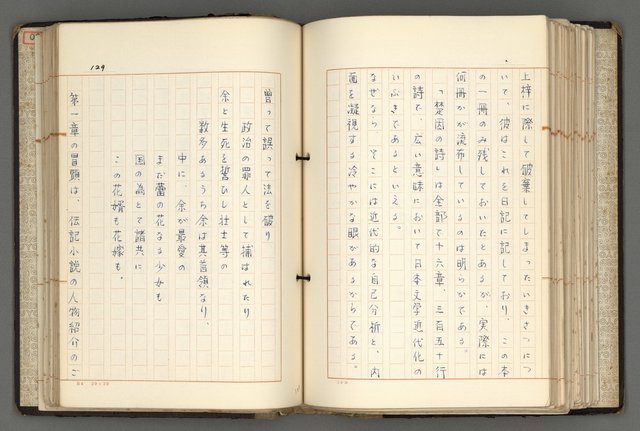 上梓に際して破棄してしまったいきさつにつ
いて、彼はこれを日記に記しており、この本
の一冊のみ残しておいたとあるが、実際には
何冊かが流布しているのは明らかである。
「楚囚の詩」は全部で十六章、三百五十行
の詩で、広い意味において日本文学近代化の
いぶきであるといえる。
なぜなら、そこには近代的な自己分析と、内
面を凝視する冷やかな眼があるからである。
129
曽って誤って法を破り
政治の罪人として捕はれたり
余と生死を誓ひし壮士等の
数多あるうち余は其首領なり、
中に、余が最愛の
まだ蕾の花なる少女も
国の為とて諸共に
この花婿も花嫁も。
第一章の冒頭は、伝記小説の人物紹介のご